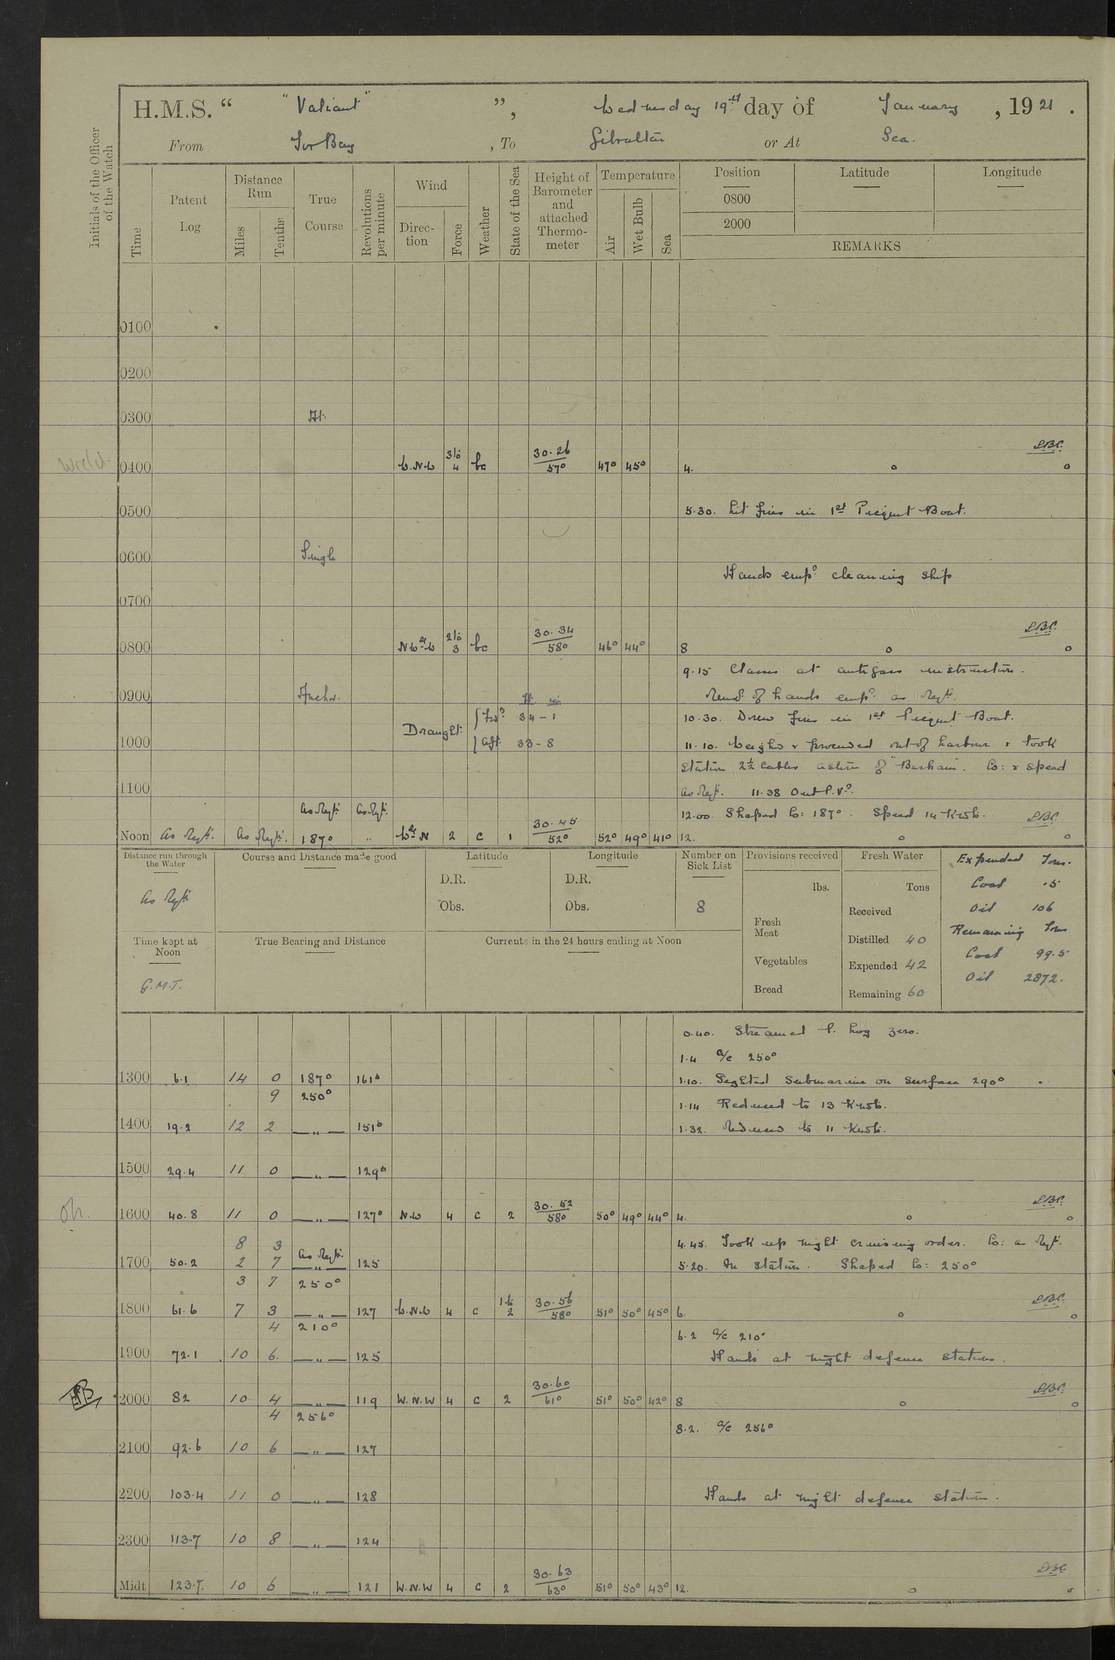 H.M.S. " "Valiant" ", Wednesday 19th day of January, 1921.
From Tor Bay, To Gibraltar or At Sea.
Initials of the Officer of the Watch
Time
Patent Log
Distance Run
Miles
Tenths
True Course
Revolutions per minute
Wind
Direction
Force
Weather
State of the Sea
Height of Barometer and attached Thermometer
Temperature
Air
Wet Bulb
Sea
Position
0800
2000
Latitude
Longitude
REMARKS
0100
0200
0300 At
0400 W.N.W 3 to 4 bc 30.26 57° 47° 45° 4.
0500 5.30. Lit fires in 1st Picquet Boat.
0600 Single
Hands emp° cleaning ship
0700
0800 NWxW 2 to 3 bc 30.34 58° 46° 44° 8
9.15 Classes at antigas instruction.
0900 Anchor. Remd of hands emp° as Reqt.
Draught { Ford 34 - 1 10.30. Drew fires in 1st Picquet Boat.
1000 { Aft. 33 - 8 11.10. Weighed & proceeded out of harbour & took
station 2½ cables astern of "Barham". Co: & speed
1100 as Reqt. 11.38 Out P.Vs.
As Reqt. As Reqt. 12.00. Shaped Co: 187°. Speed 14 Knots.
Noon As Reqt. As Reqt. 187° " WxN 2 c 1 30.45 52° 52° 49° 41° 12.
Distance run through the Water
As Reqt
Course and Distance made good
Latitude
D.R.
Obs.
Longitude
D.R.
Obs.
Number on Sick List
8
Provisions received
lbs.
Fresh Meat
Vegetables
Bread
Fresh Water
Tons
Received
Distilled 40
Expended 42
Remaining 60
Expended Tons.
Coal .5
Oil 106
Remaining Tons
Coal 99.5
Oil 2872.
Time kept at Noon
G.M.T.
True Bearing and Distance
Currents in the 24 hours ending at Noon
0.40. Streamed P. Log zero.
1.4 a/c 250°
1300 6.1 14 0 187° 161 1.10. Sighted Submarine on surface 290°
9 250°
1.14 Reduced to 13 Knots.
1400 19.2 12 2 " 151 1.32. Reduced to 11 Knots.
1500 29.4 11 0 " 129
1600 40.8 11 0 " 127 NW 4 c 2 30.52 58° 50° 49° 44° 4.
8 3 As Reqt. 4.45. Took up night cruising order. Co: as Reqt.
1700 50.2 2 7 " 125 5.20. In station. Shaped Co: 250°
3 7 250°
1800 61.6 7 3 " 127 W.N.W 4 c 1 to 2 30.56 58° 51° 50° 45° 6.
4 210° 6.2 a/c 210°
1900 72.1 10 6 " 125 Hands at night defence stations.
2000 82 10 4 " 119 W.N.W 4 c 2 30.60 61° 51° 50° 42° 8
4 256° 8.2. a/c 256°
2100 92.6 10 6 " 127
2200 103.4 11 0 " 128 Hands at night defence stations.
2300 113.7 10 8 " 124
Midt 123.7. 10 6 " 121 W.N.W 4 c 2 30.63 63° 51° 50° 43° 12.